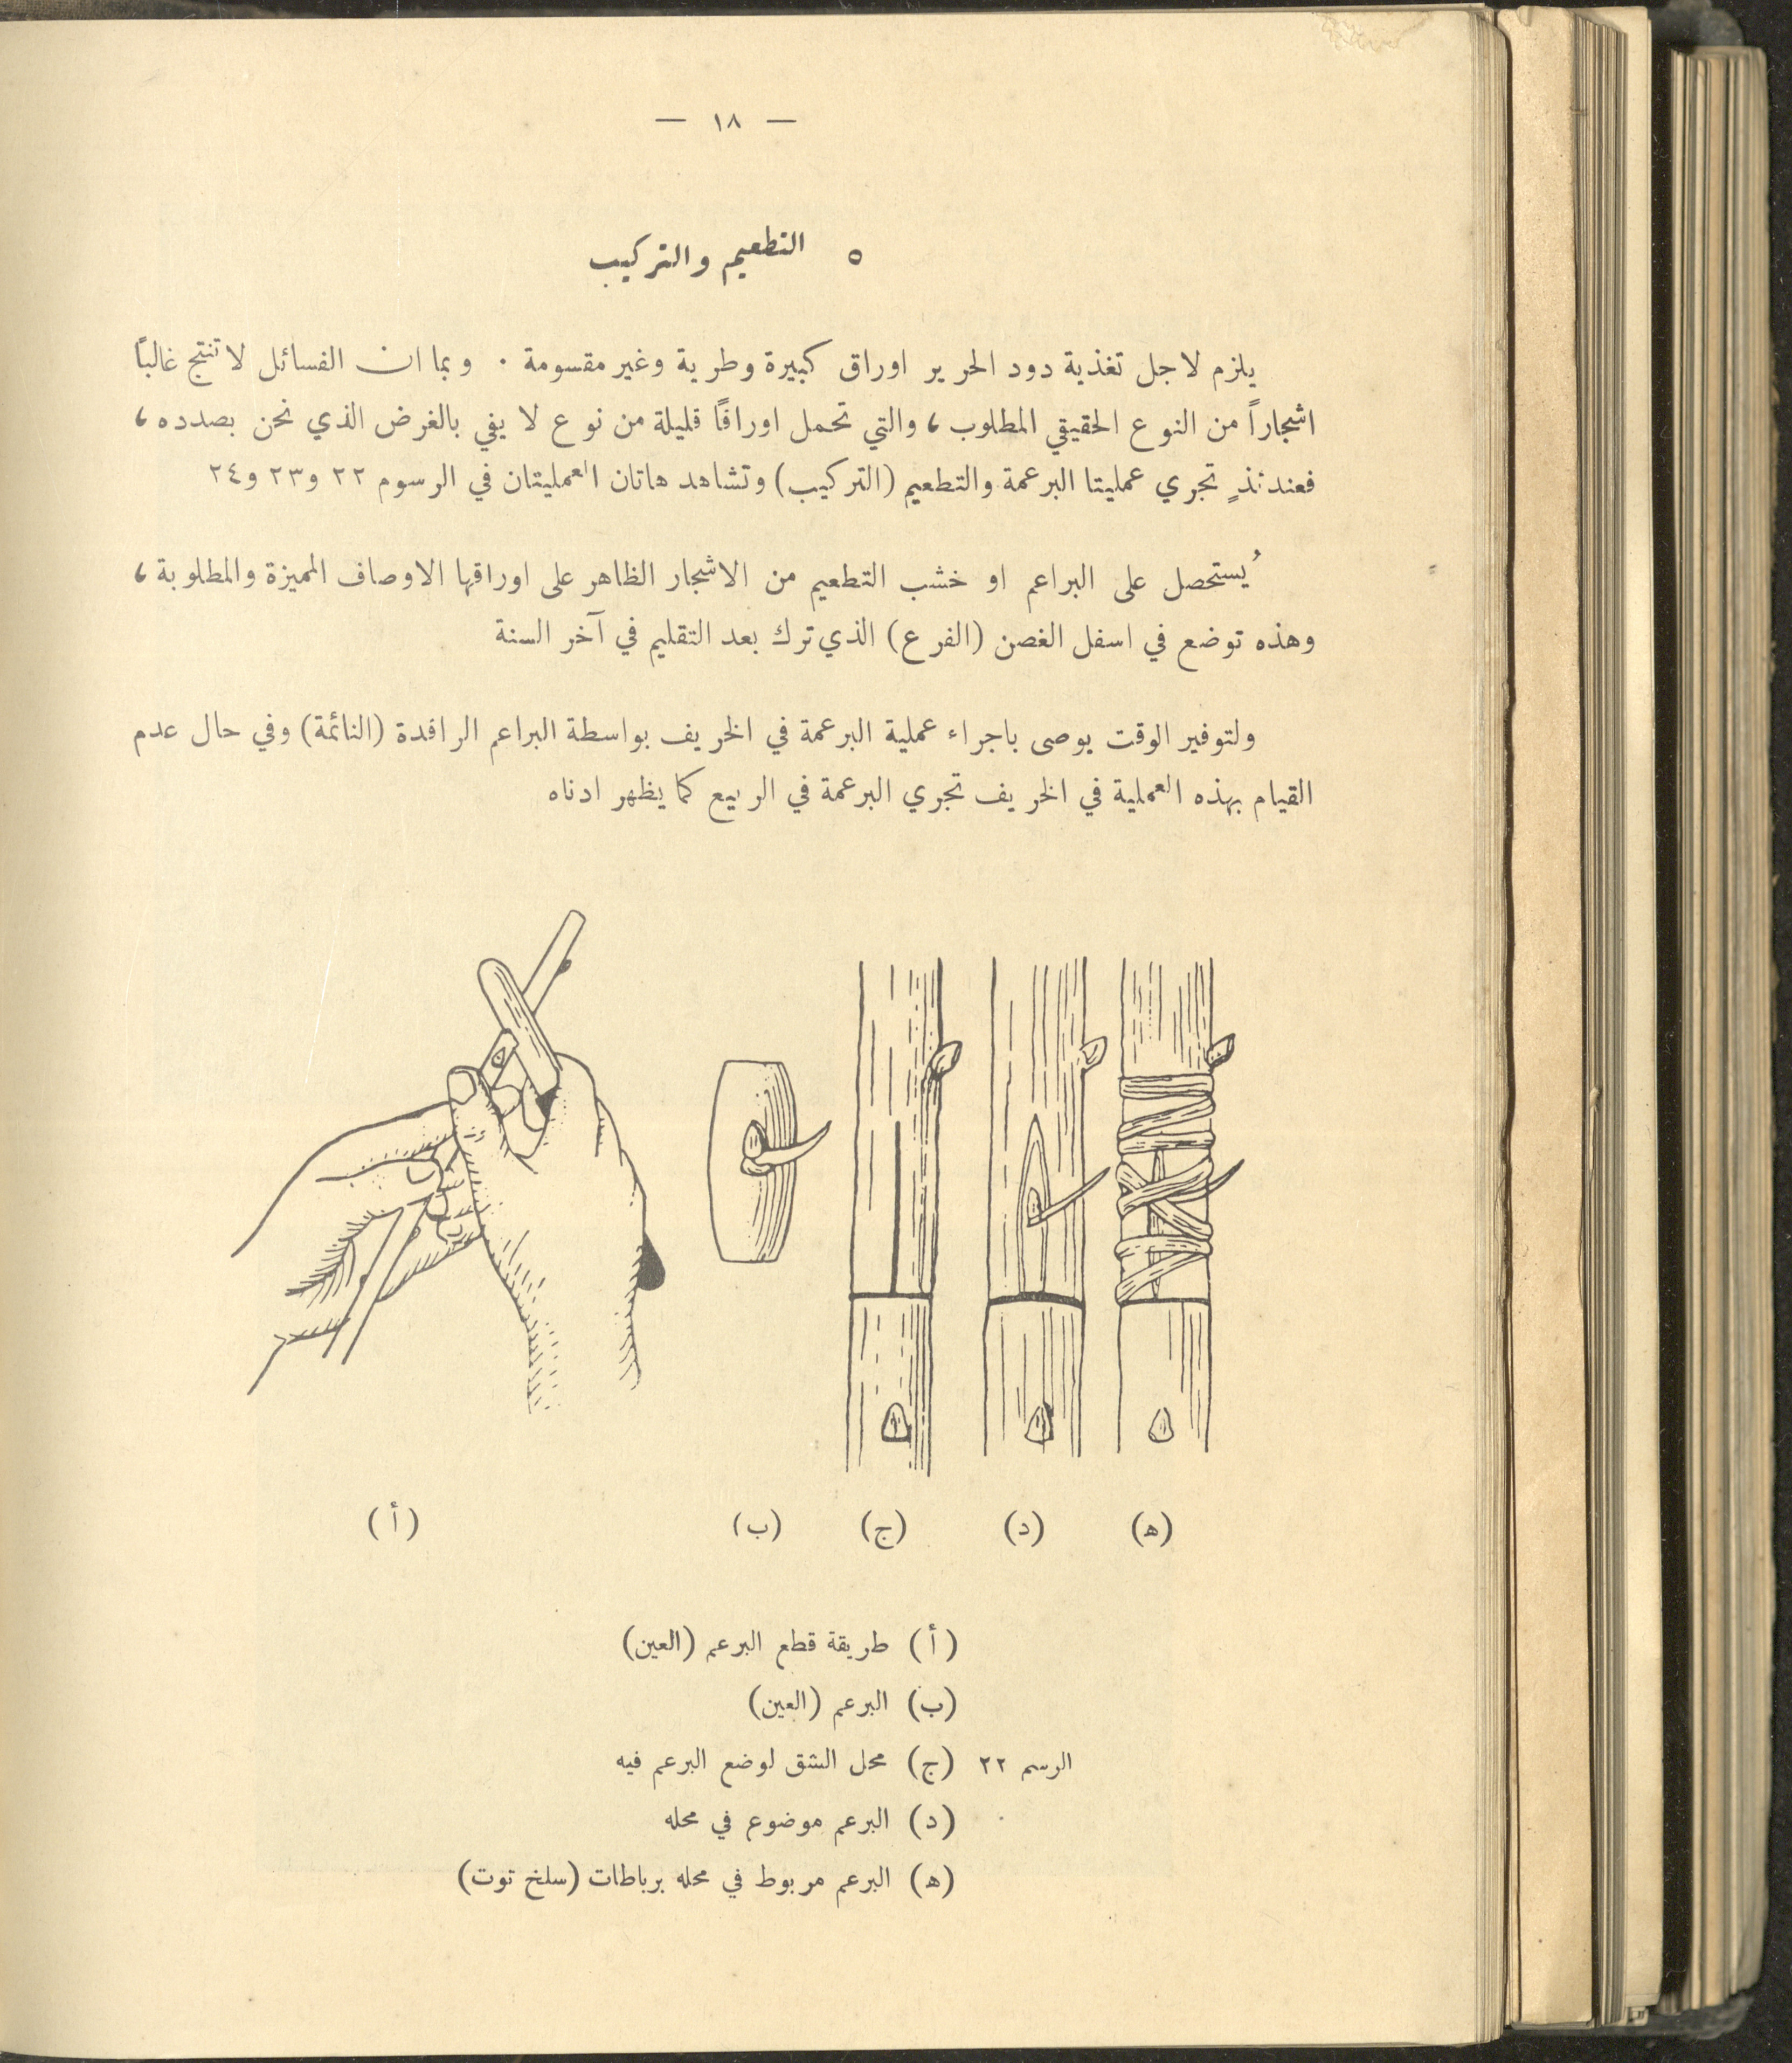 — ١٨ —
٥ التطعيم والتركيب
يلزم لاجل تغذية دود الحرير اوراق كبيرة وطرية وغير مقسومة . وبما ان الفسائل لا تنتج غالباً
اشجاراً من النوع الحقيقي المطلوب ، والتي تحمل اوراقاً قليلة من نوع لا يفي بالغرض الذي نحن بصدده ،
فعندئذٍ تجري عمليتا البرعمة والتطعيم (التركيب) وتشاهد هاتان العمليتان في الرسوم ٢٢ و٢٣ و٢٤
يُستحصل على البراعم او خشب التطعيم من الاشجار الظاهر على اوراقها الاوصاف المميزة والمطلوبة ،
وهذه توضع في اسفل الغصن (الفرع) الذي ترك بعد التقليم في آخر السنة
ولتوفير الوقت يوصى باجراء عملية البرعمة في الخريف بواسطة البراعم الراقدة (النائمة) وفي حال عدم
القيام بهذه العملية في الخريف تجري البرعمة في الربيع كما يظهر ادناه
(ه) (د) (ج) (ب) (أ)
(أ) طريقة قطع البرعم (العين)
(ب) البرعم (العين)
الرسم ٢٢ (ج) محل الشق لوضع البرعم فيه
(د) البرعم موضوع في محله
(ه) البرعم مربوط في محله برباطات (سلخ توت)